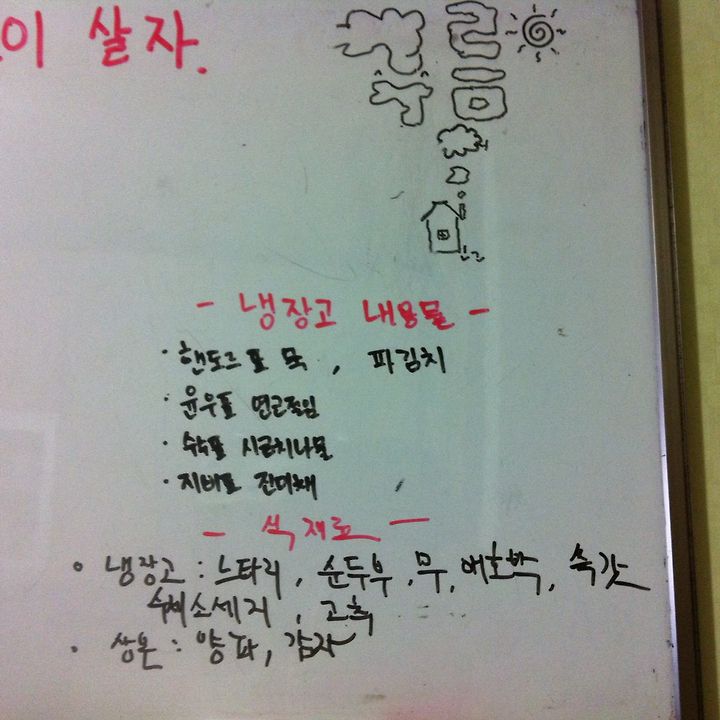 이 살자.
- 냉장고 내용물 -
· 핸도르표 묵, 파김치
· 윤우표 연근조림
· 숙표 시금치나물
· 지비표 진미채
- 식재료 -
· 냉장고 : 느타리, 순두부, 무, 애호박, 쑥갓
수제소세지, 고추
· 상온 : 양파, 감자